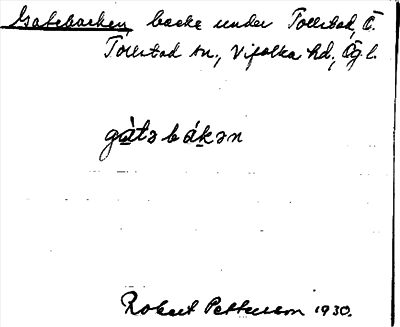 Gatebacken backe under Tollstad, Ö.
Tollstad sn., Vifolka hd., Ög. l.
gàtəbákən
Robert Pettersson 1930.